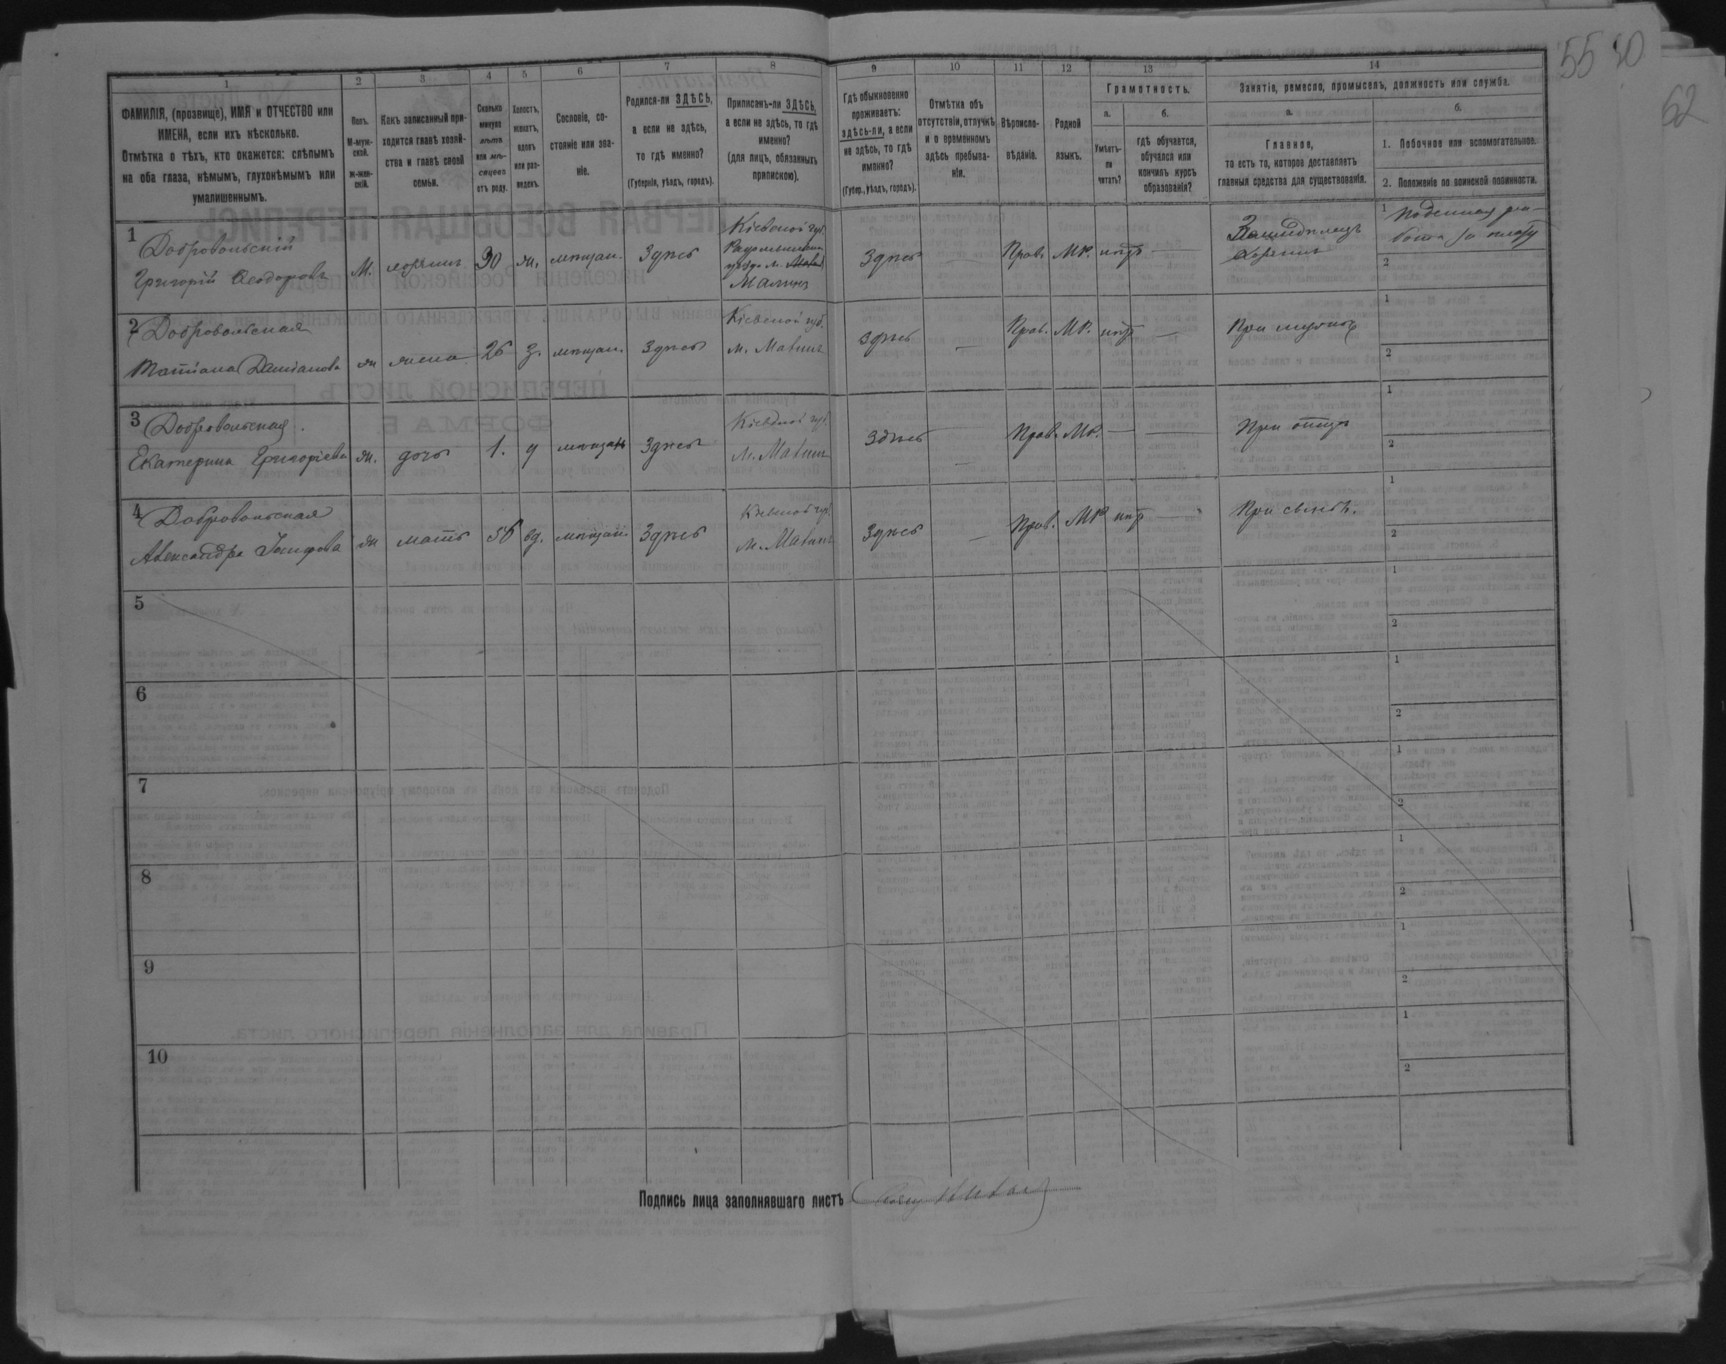 55 50
62
1
ФАМИЛІЯ, (прозвище), ИМЯ и ОТЧЕСТВО или
ИМЕНА, если ихъ нѣсколько.
Отмѣтка о тѣхъ, кто окажется: слѣпымъ
на оба глаза, нѣмымъ, глухонѣмымъ или
умалишеннымъ.
2
Полъ.
М-муж-
ской.
ж-жен-
скій.
3
Какъ записанный при-
ходится главѣ хозяй-
ства и главѣ своей
семьи.
4
Сколько
минуло
лѣтъ
или мѣ-
сяцевъ
отъ роду.
5
Холостъ,
женатъ,
вдовъ
или раз-
веденъ.
6
Сословіе, со-
стояніе или зва-
ніе.
7
Родился-ли ЗДѢСЬ,
а если не здѣсь,
то гдѣ именно?
(Губернія, уѣздъ, городъ).
8
Приписанъ-ли ЗДѢСЬ,
а если не здѣсь, то гдѣ
именно?
(для лицъ, обязанныхъ
припискою).
9
Гдѣ обыкновенно
проживаетъ:
здѣсь-ли, а если
не здѣсь, то гдѣ
именно?
(Губер., уѣздъ, городъ).
10
Отмѣтка объ
отсутствіи, отлучкѣ
и о временномъ
здѣсь пребыва-
ніи.
11
Вѣроиспо-
вѣданіе.
12
Родной
языкъ.
13
Грамотность.
а.
Умѣетъ-
ли
читать?
б.
гдѣ обучается,
обучался или
кончилъ курсъ
образованія?
14
Занятіе, ремесло, промыселъ, должность или служба.
а.
Главное,
то есть то, которое доставляетъ
главныя средства для существованія.
б.
1. Побочное или вспомогательное.
2. Положеніе по воинской повинности.
1
Добровольскій
Григорій Ѳеодоровъ
М.
хозяинъ
30
ж.
мѣщан.
Здѣсь
Кіевской губ.
Радомысльскаго
уѣзда м.
Малинъ
Здѣсь
Прав.
МР.
нѣтъ
—
Земледѣлецъ
хозяинъ
1
Поденная ра-
бота за плату
2
2
Добровольская
Татіана Даміанова
ж
жена
26
з.
мѣщан.
Здѣсь
Кіевской губ.
м. Малинъ
здѣсь
—
Прав.
МР.
нѣтъ
—
При мужѣ
1
2
3
Добровольская.
Екатерина Григоріева
ж.
дочь
1.
д
мѣщан
Здѣсь
Кіевской губ.
м. Малинъ
Здѣсь
—
Прав.
МР.
—
—
При отцѣ
1
2
4
Добровольская
Александра Іосифова
ж
мать
56
вд.
мѣщан.
Здѣсь
Кіевской губ.
м. Малинъ
Здѣсь
—
Прав.
МР
нѣтъ
—
При сынѣ.
1
2
5
1
2
6
1
2
7
1
2
8
1
2
9
1
2
10
1
2
Подпись лица заполнявшаго листъ